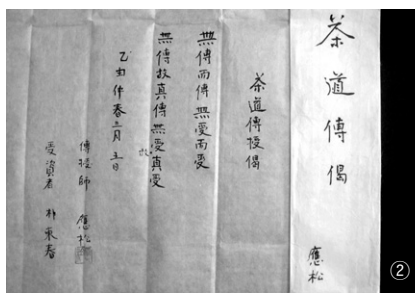 茶道傳偈
應松
茶道傳授偈
無傳而傳無受而受
無傳故真傳無受故真受
乙丑仲春三月五日
傳授師 應松
受資者 朴東春
②